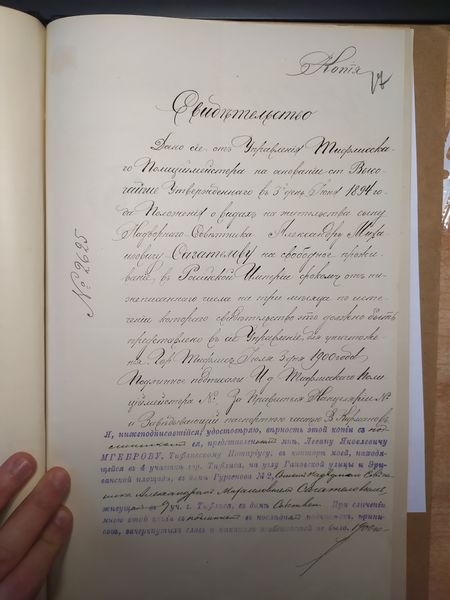 Копія
17
Свидѣтельство
Дано сіе отъ Управленія Тифлисска-
го Полиціймейстера на основаніи ст. Высо-
чайше Утвержденнаго въ 3й день Іюня 1894 го-
да Положенія о видахъ на жительство сыну
Надворнаго Совѣтника Александру Миха
йловичу Сагателову на свободное прожи-
ваніе въ Россійской Имперіи срокомъ отъ ни-
жеписаннаго числа на три мѣсяца по исте-
ченіи котораго свидѣтельство это должно быть
представлено въ сіе Управленіе, для уничтоже-
нія. Гор. Тифлисъ Іюля 5 дня 1900 года
Подлинное подписали И. д. Тифлисскаго Поли
циймейстера За Правителя Канцеляріи
и Завѣдывающій паспортною частью
№ 2625
Я, нижеподписавшійся, удостовѣряю, вѣрность этой копіи съ под-
линникомъ ея, представленнымъ мнѣ, Левану Яковлевичу
МГЕБРОВУ, Тифлисскому Нотаріусу, въ конторѣ моей, находя-
щейся въ 4 участкѣ гор. Тифлиса, на углу Гановской улицы и Эри-
ванской площади, въ домѣ Гургенова № 2, сыномъ Надворнаго Совѣт-
ника Александромъ Михайловичемъ Сагателовымъ,
живущимъ въ 7 уч. г. Тифлиса, въ домѣ Собствен. При сличеніи
мною этой копіи съ подлинникомъ въ послѣднемъ подчистокъ, припи-
сокъ, зачеркнутыхъ словъ и никакихъ особенностей не было. 1900